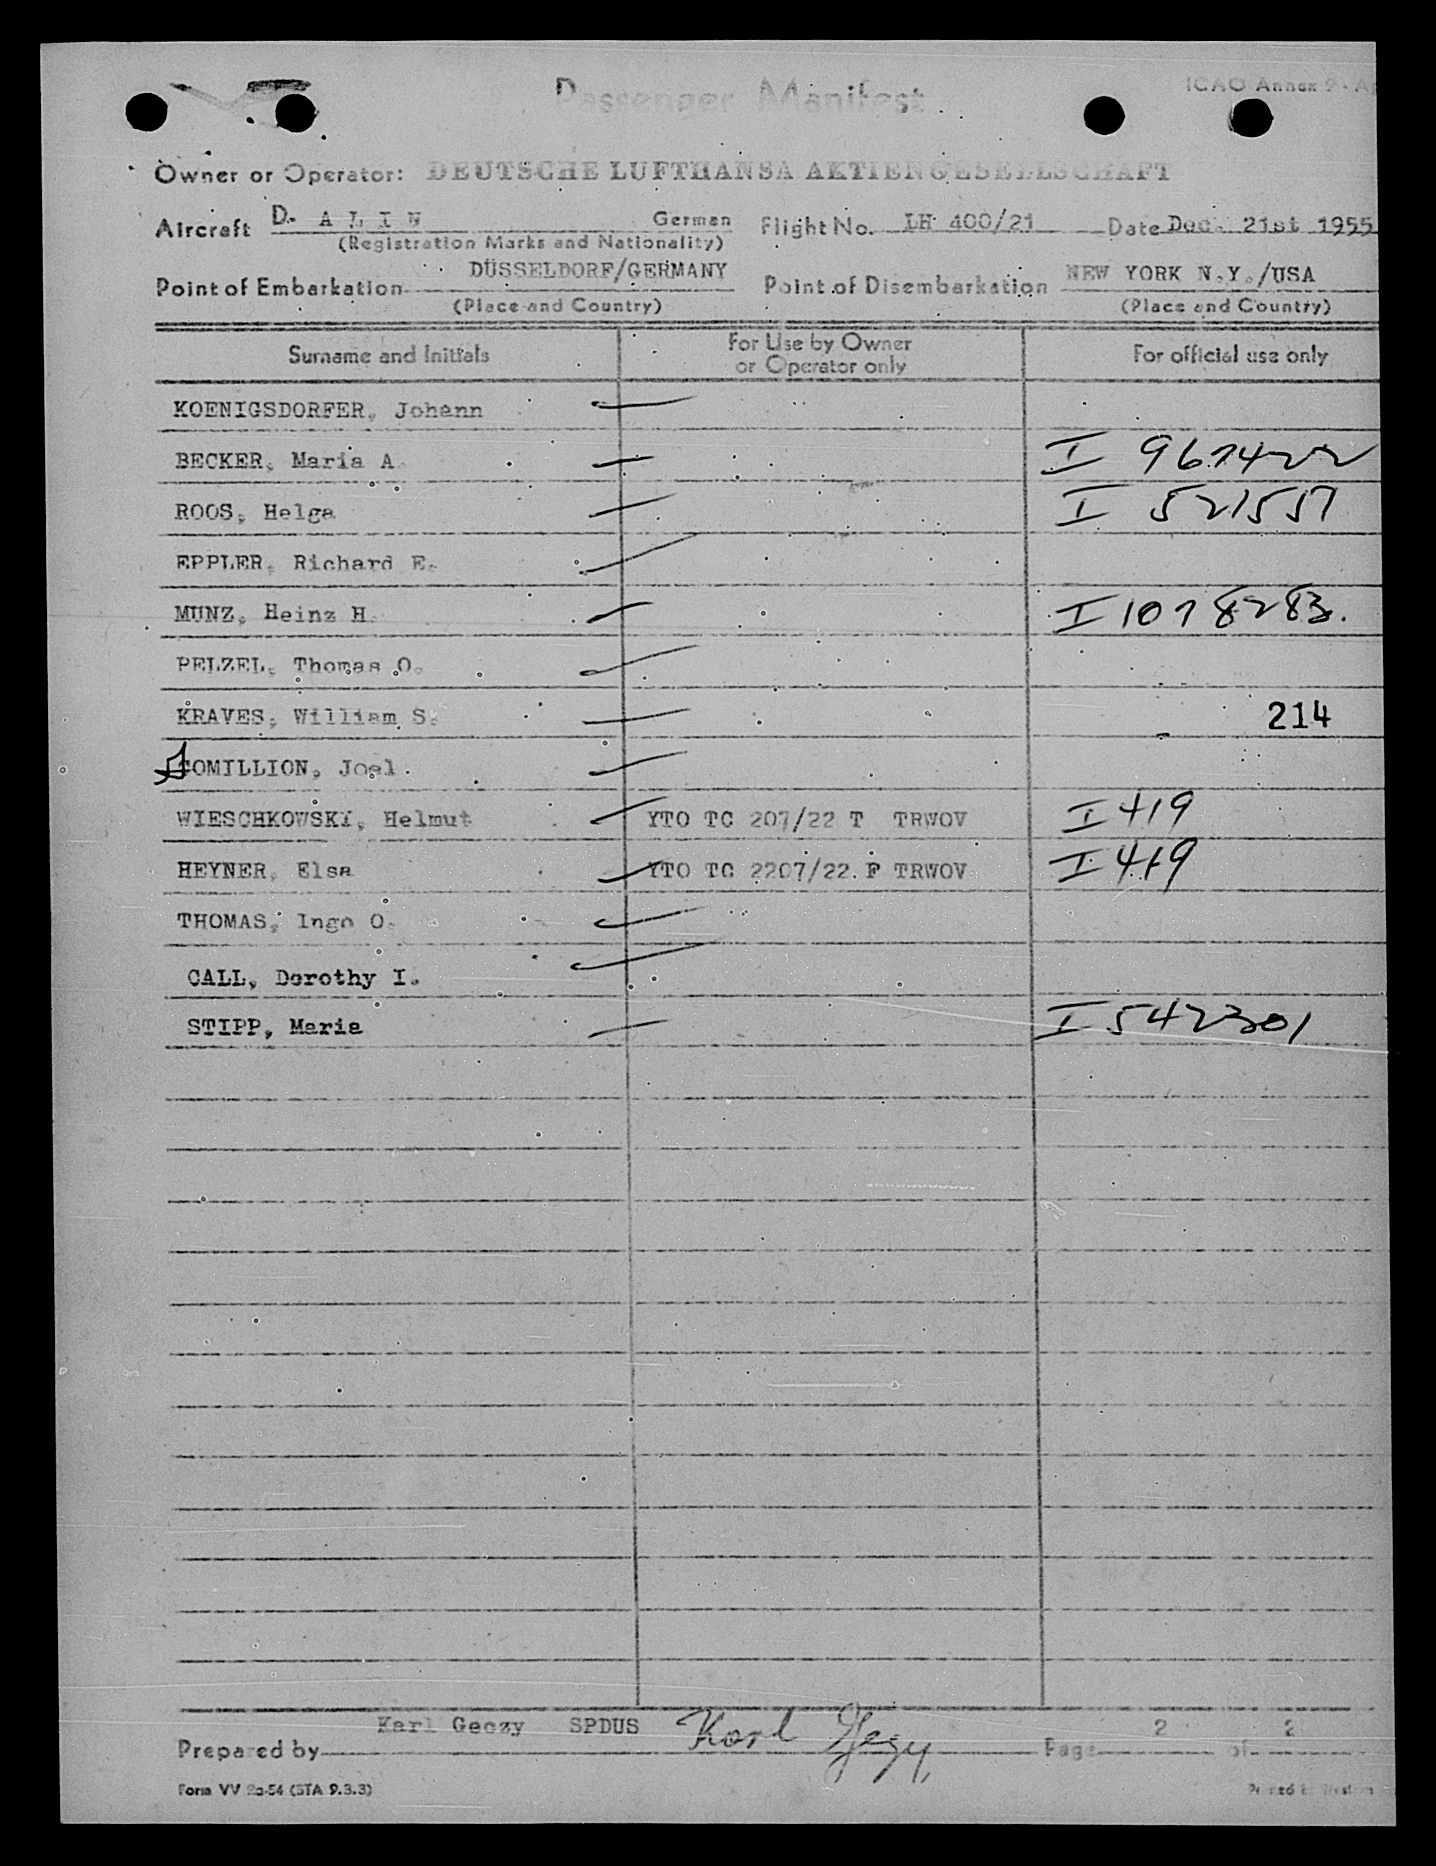 Passenger Manifest
ICAO Annex 9 - Ap
Owner or Operator: DEUTSCHE LUFTHANSA AKTIENGESELLSCHAFT
Aircraft D- A L I N German Flight No. LH 400/21 Date Dec. 21st 1955
(Registration Marks and Nationality)
Point of Embarkation DÜSSELDORF/GERMANY Point of Disembarkation NEW YORK N.Y./USA
(Place and Country) (Place and Country)
Surname and Initials For Use by Owner or Operator only For official use only
KOENIGSDORFER, Johann
BECKER, Maria A. I 9674222
ROOS, Helga I 521517
EPPLER, Richard E.
MUNZ, Heinz H. I 1078283.
PELZEL, Thomas O.
KRAVES, William S. 214
GOMILLION, Joel.
WIESCHKOWSKI, Helmut YTO TC 207/22 T TRWOV I 419
HEYNER, Elsa YTO TC 2207/22. F TRWOV I 419
THOMAS, Ingo O.
CALL, Dorothy I.
STIPP, Maria I 542301
Karl Geczy SPDUS Karl Geczy 2 2
Prepared by Page of
Form VV 2a-54 (STA 9.3.3)